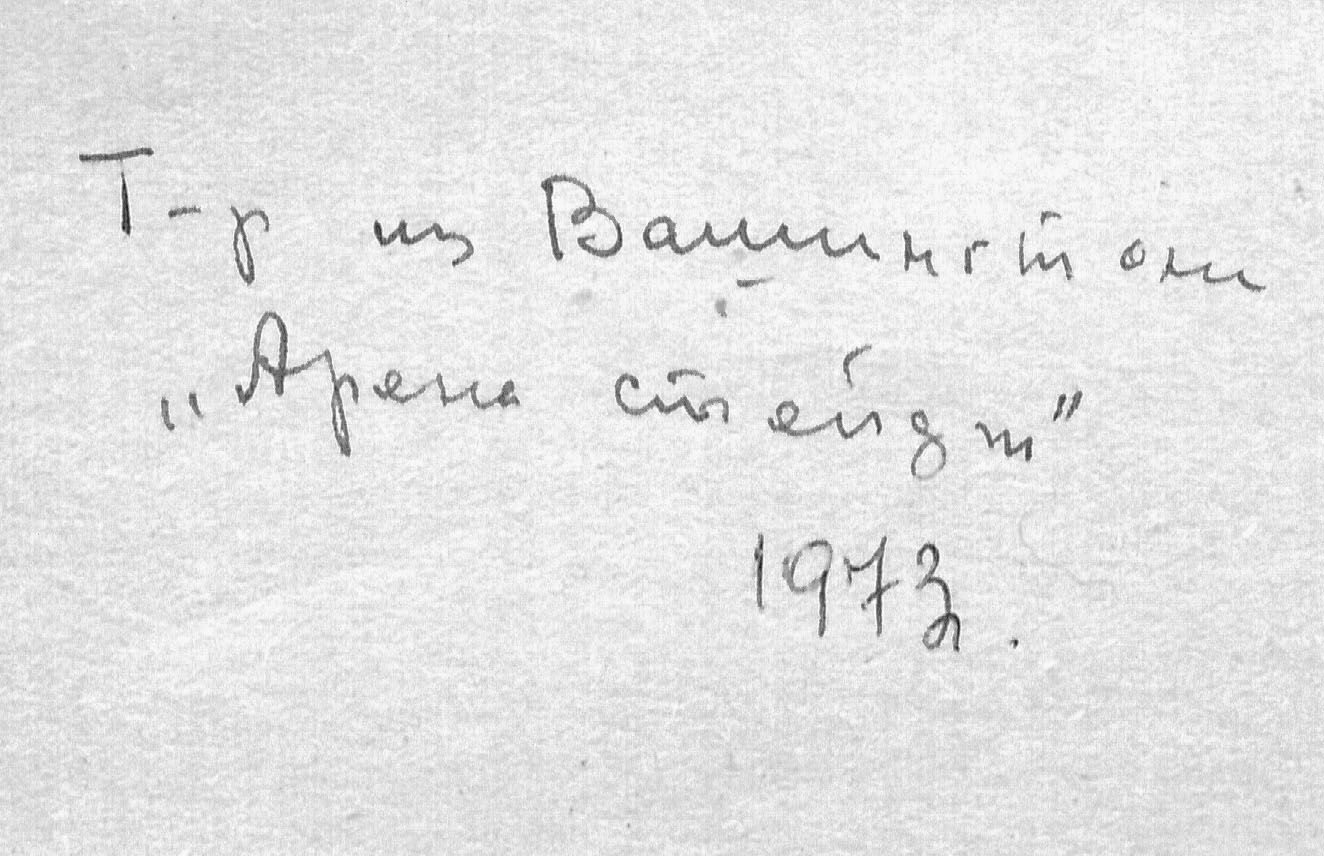 Т-р из Вашингтона
„Арена стейдж"
1973.